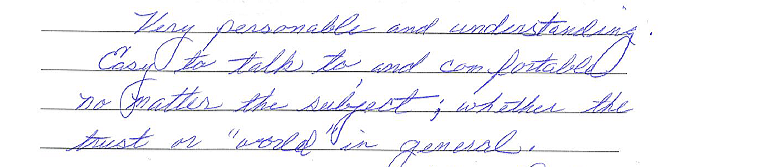 Very personable and understanding.
Easy to talk to and comfortable
no matter the subject; whether the
trust or "world" in general.